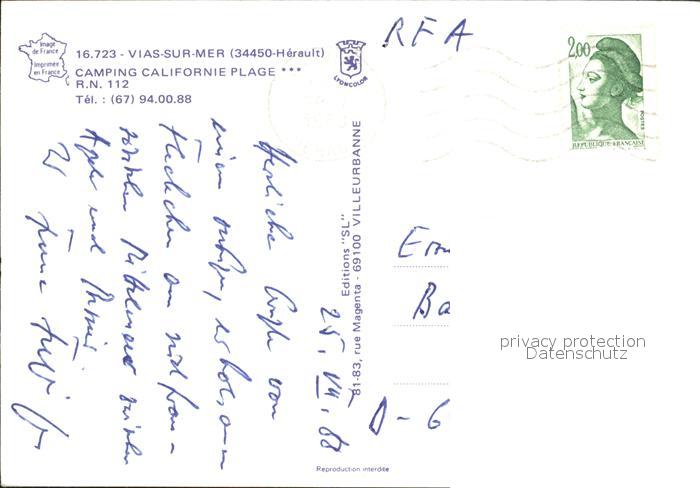 Image
de France
Imprimée
en France
16.723 - VIAS-SUR-MER (34450-Hérault)
CAMPING CALIFORNIE PLAGE ***
R.N. 112
Tél. : (67) 94.00.88
LYONCOLOR
RFA
2,00
POSTES
REPUBLIQUE FRANÇAISE
25. VII. 88
Herzliche Grüße von
einem
Fleckchen am südfran-
zösischen Mittelmeer zwischen
Agde und
Editions "SL"
81-83, rue Magenta - 69100 VILLEURBANNE
Ba
D-6
privacy protection
Datenschutz
Reproduction interdite